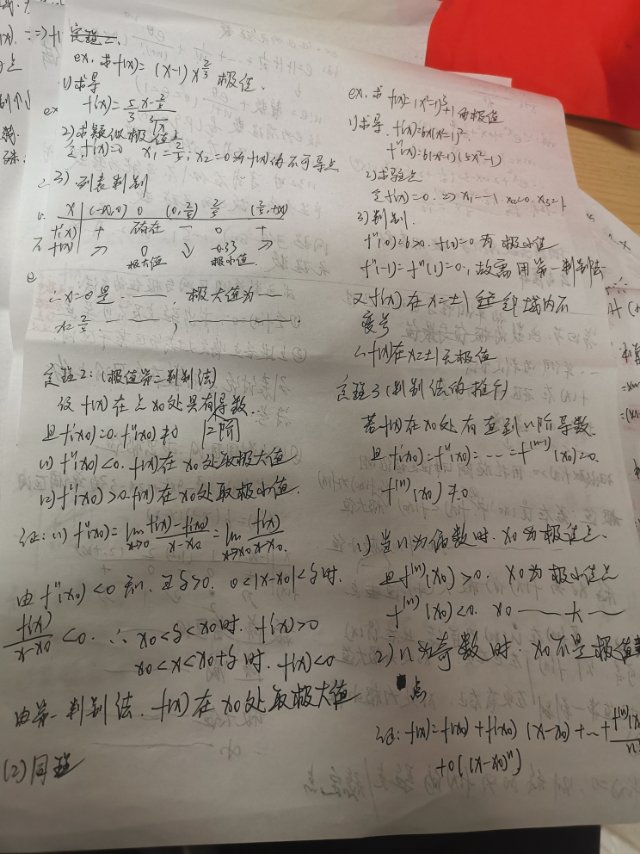 定理二、
ex. 求f(x)=(x-1)x^{2/3} 极值.
1) 求导
f'(x)=\frac{5}{3}\frac{x-\frac{2}{5}}{\sqrt[3]{x}}
2) 求疑似极值点
令f'(x)=0 x₁=2/5, x₂=0为f(x)的不可导点
3) 列表判别
x (-∞,0) 0 (0,2/5) 2/5 (2/5,+∞)
f'(x) + - 0 +
f(x) ↗ 0 ↘ -0.33 ↗
极大值 极小值
∴x=0是——, 极大值为——
x=2/5 ——, ——
定理2: (极值第二判别法)
设 f(x) 在点x₀处具有二阶导数
且f'(x₀)=0. f''(x₀)≠0
(1) f''(x₀)<0. f(x)在x₀处取极大值
(2) f''(x₀)>0. f(x)在x₀处取极小值.
证: (1) f''(x₀)=lim \frac{f'(x)-f'(x₀)}{x-x₀}=lim_{x→x₀}\frac{f'(x)}{x-x₀}
由f''(x₀)<0 知, ∃δ>0. 0<|x-x₀|<δ时.
\frac{f'(x)}{x-x₀}<0. ∴ x₀<δ<x₀时. f'(x)>0
x₀<x<x₀+δ时. f'(x)<0
由第一判别法. f(x)在x₀处取极大值
(2) 同理
ex. 求f(x)=(x²-1)³+1的极值
1) 求导. f'(x)=6x(x²-1)².
f''(x)=6(x²-1)(5x²-1)
2) 求驻点
令f'(x)=0. ⇒ x₁=-1 x₂=0. x₃=1
3) 判别.
f''(0)=6>0. f(x)=0有极小值
f''(-1)=f''(1)=0, 故需用第一判别法
又f'(x)在x=±1邻域内不
变号
∴f(x)在x=±1无极值
定理3 (判别法的推广)
若f(x)在x₀处有直到n阶导数.
且f'(x₀)=f''(x₀)=……=f^{(n-1)}(x₀)=0.
f^{(n)}(x₀)≠0
1) 当n为偶数时. x₀为极值点.
且f^{(n)}(x₀)>0. x₀为极小值点
f^{(n)}(x₀)<0. x₀ ——大——
2) n为奇数时. x₀不是极值
点
证: f(x)=f(x₀)+f'(x₀)(x-x₀)+…+\frac{f^{(n)}(x
+o((x-x₀)^n)